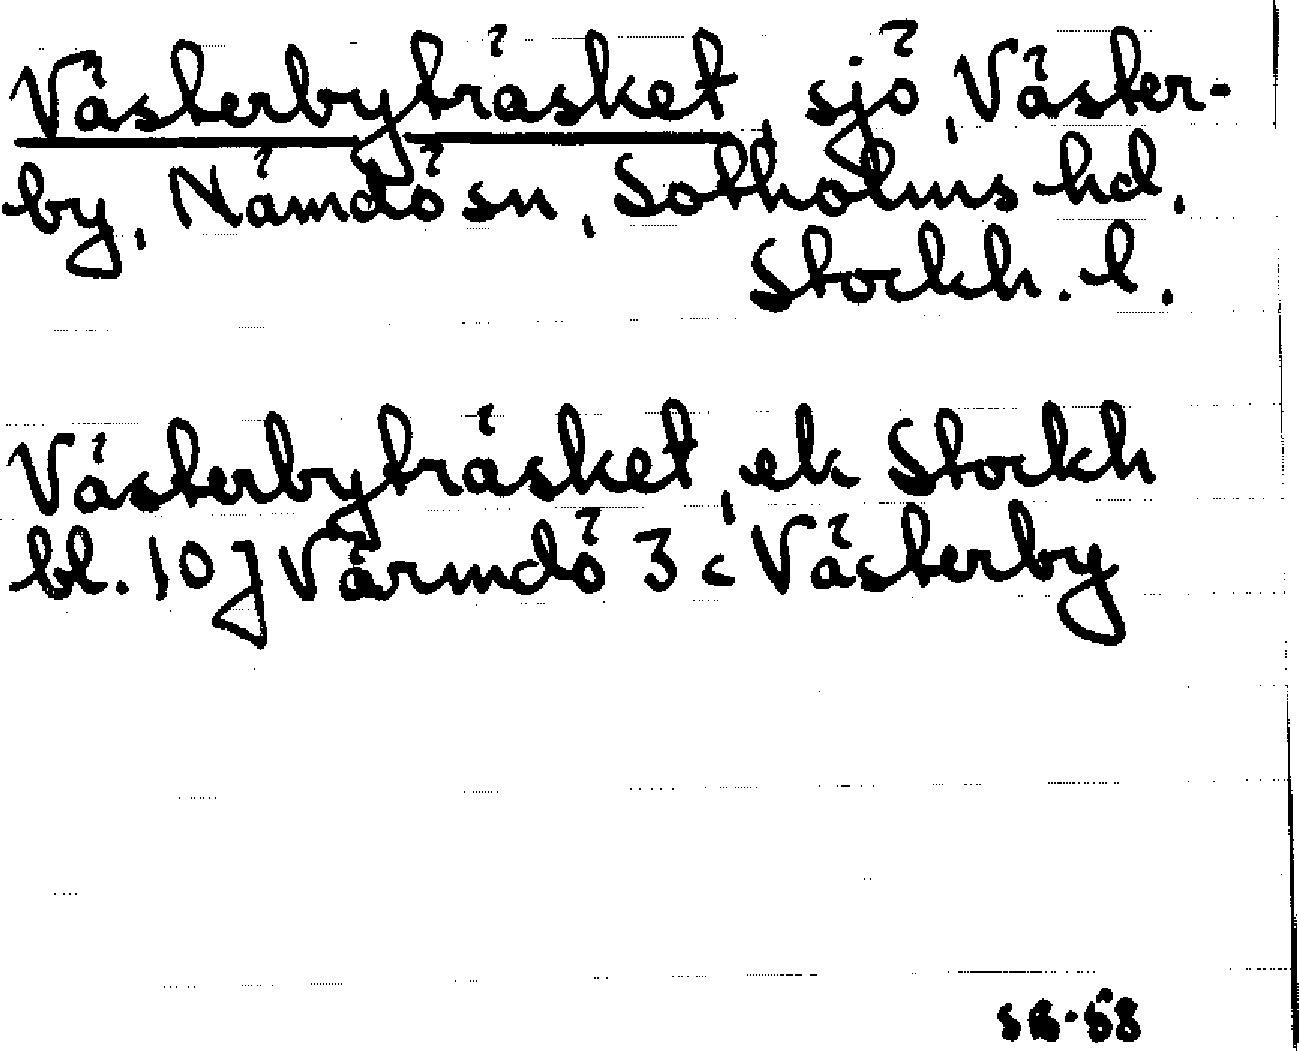 Västerbyträsket, sjö, Väster-
by, Nämdö sn, Sotholms hd.
Stockh. l.
Västerbyträsket, ek Stockh
bl. 10 J Värmdö 3 c Västerby